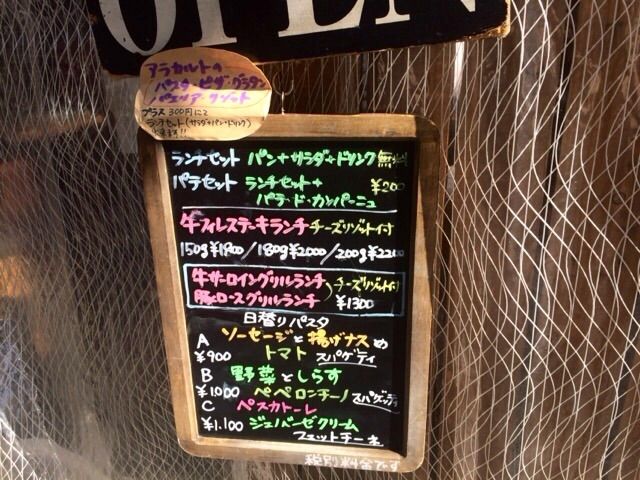 OPEN
アラカルトの
パスタ・ピザ・グラタン
パエリア・リゾット
プラス300円にて
ランチセット(サラダ+パン+ドリンク)
ランチセット パン+サラダ+ドリンク 無料
パテセット ランチセット+ ¥200
パテ・ド・カンパーニュ
牛フィレステーキランチ チーズリゾット付
150g¥1900/180g¥2000/200g¥2200
牛サーロイングリルランチ チーズリゾット付
豚ロースグリルランチ ¥1300
日替りパスタ
A ソーセージと揚げナスの
¥900 トマト スパゲティ
B 野菜としらす
¥1.000 ペペロンチーノ スパゲッティ
C ペスカトーレ
¥1.100 ジェノバーゼクリーム
フェットチーネ